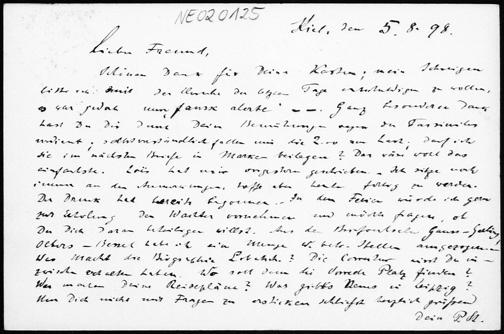 NE020125
Kiel, den 5.8.98.
Lieber Freund,
Schönen Dank für Deine Karten; mein Schweigen
bitte ich mit der Unruhe der letzten Tage entschuldigen zu wollen,
es war jedoch nur "fausse alerte" —. Ganz besonderen Dank
hast Du Dir durch Deine Bemühungen wegen des Facsimiles
verdient; selbstverständlich fallen mir die zur Last, darf ich
sie im nächsten Briefe in Marken beilegen? Das wäre wohl das
einfachste. hat mir vorgestern geschrieben. Ich sitze noch
immer an den Anmerkungen, hoffe aber heute fertig zu werden.
Der Druck hat bereits begonnen. In den Ferien würde ich gern
zur Erholung den Walther vornehmen und möchte fragen, ob
Du Dich daran beteiligen willst. Aus den Briefwechseln Gauss-
Olbers-Bessel habe ich eine Menge Stellen ausgezogen.
Was macht die Biographie Lobatsch.? Die Correctur wirst Du in-
zwischen erhalten haben. Wo soll denn die Vorrede Platz finden?
Was machen Deine Reisepläne? Was giebts Neues in Leipzig?
Um Dich nicht mit Fragen zu ersticken schliesst herzlich grüssend
Dein P. St.